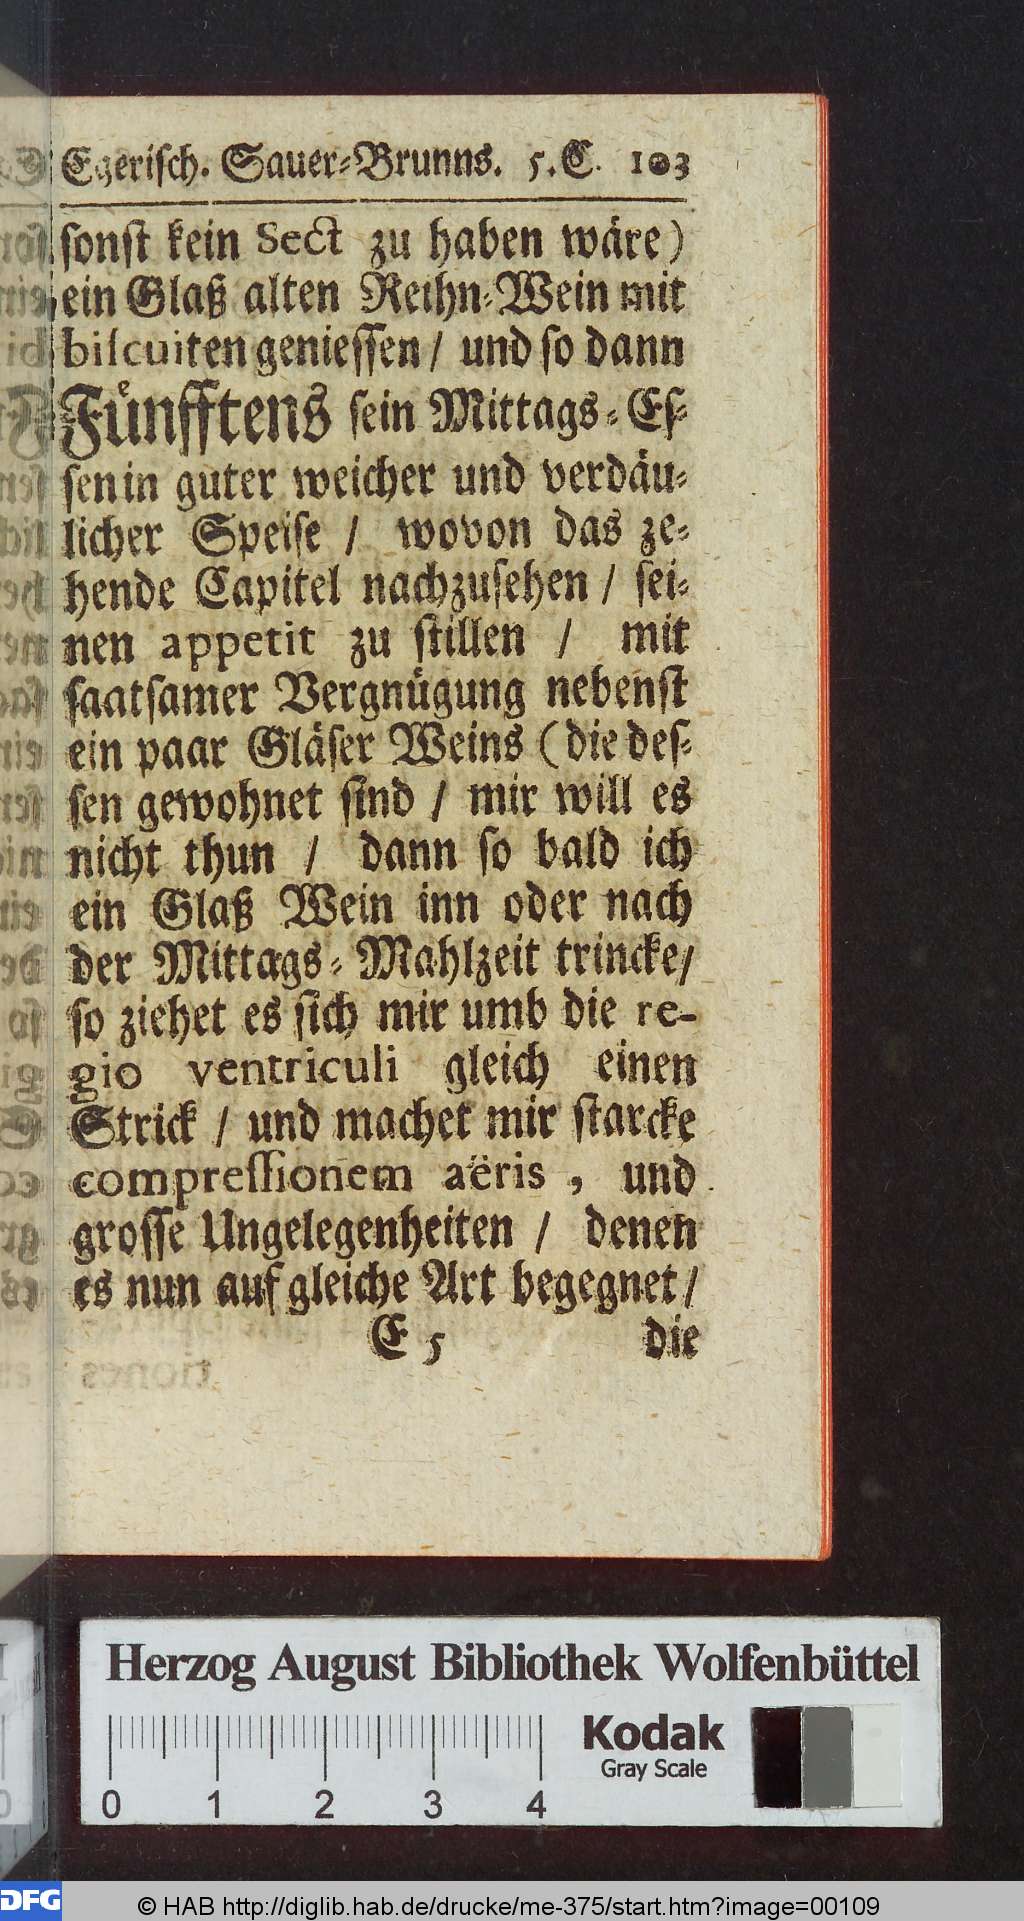 Egerisch. Sauer-Brunns. 5.C. 103
sonst kein Sect zu haben wäre)
ein Glaß alten Reihn-Wein mit
biscuiten geniessen / und so dann
Fünfftens sein Mittags-Es-
sen in guter weicher und verdäu-
licher Speise / wovon das ze-
hende Capitel nachzusehen / sei-
nen appetit zu stillen / mit
saatsamer Vergnügung nebenst
ein paar Gläser Weins (die des-
sen gewohnet sind / mir will es
nicht thun / dann so bald ich
ein Glaß Wein inn oder nach
der Mittags-Mahlzeit trincke/
so ziehet es sich mir umb die re-
gio ventriculi gleich einen
Strick / und machet mir starcke
compressionem aëris, und
grosse Ungelegenheiten / denen
es nun auf gleiche Art begegnet/
E 5 die
Herzog August Bibliothek Wolfenbüttel
Kodak
Gray Scale
0 1 2 3 4
DFG © HAB http://diglib.hab.de/drucke/me-375/start.htm?image=00109